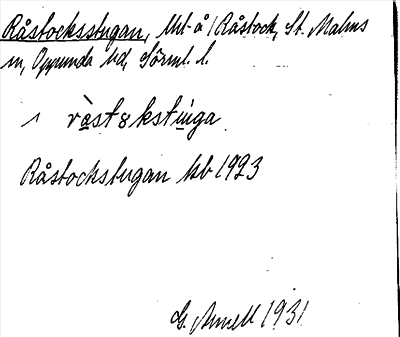 Råstocksstugan, lht å / Råstock, St. Malms
sn, Oppunda hd, Sörml. l.
ı ràstəkstu̇ga
Råstockstugan kb 1923
G. Arnell 1931